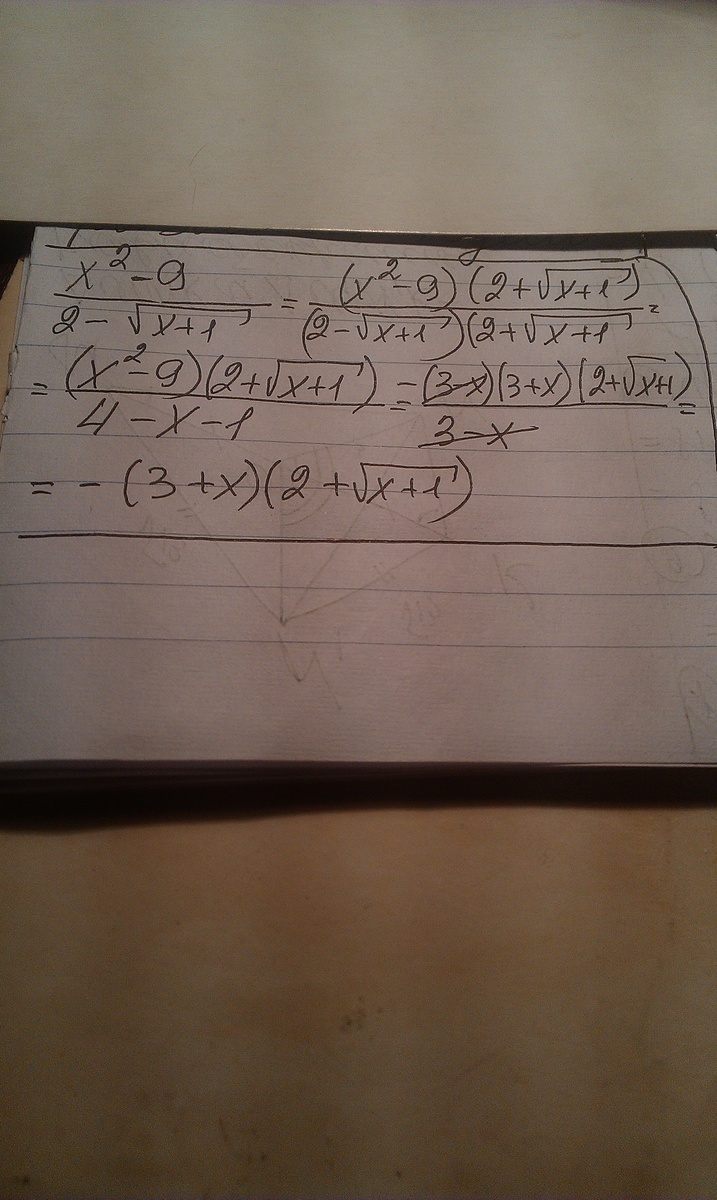 (x²-9)/(2-√(x+1)) = ((x²-9)(2+√(x+1)))/((2-√(x+1))(2+√(x+1))) =
= ((x²-9)(2+√(x+1)))/(4-x-1) = (-(3-x)(3+x)(2+√(x+1)))/(3-x) =
= -(3+x)(2+√(x+1))